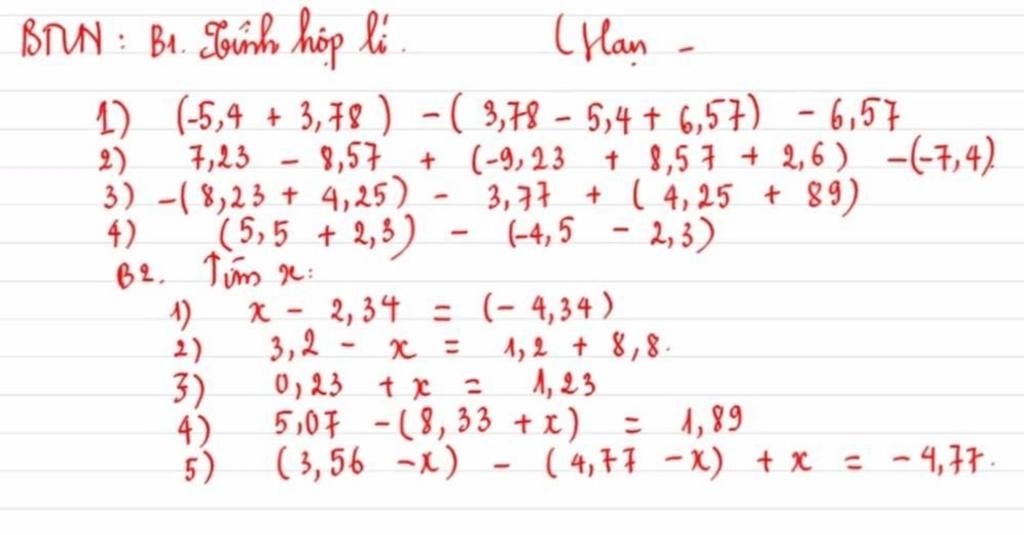 BTVN: B1. Tính hợp lí. (Hạn -
1) (-5,4 + 3,78) - (3,78 - 5,4 + 6,57) - 6,57
2) 7,23 - 8,57 + (-9,23 + 8,57 + 2,6) -(-7,4).
3) -(8,23 + 4,25) - 3,77 + (4,25 + 89)
4) (5,5 + 2,3) - (-4,5 - 2,3)
B2. Tìm x:
1) x - 2,34 = (- 4,34)
2) 3,2 - x = 1,2 + 8,8.
3) 0,23 + x = 1,23
4) 5,07 - (8,33 + x) = 1,89
5) (3,56 - x) - (4,77 - x) + x = - 4,77.